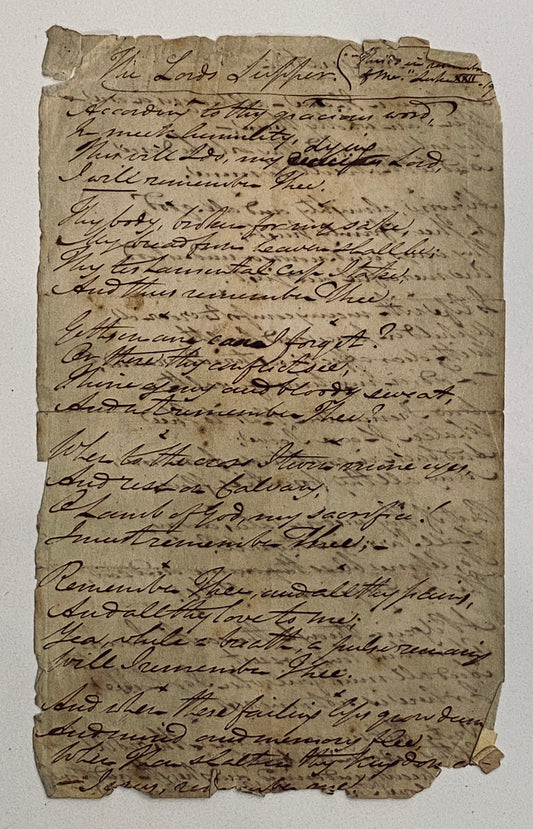 The Lords Supper.
"This do in remembrance
of me." Luke XXII. 19
According to thy gracious word,
In meek humility,
This will I do, my dying Lord,
I will remember Thee.
Thy body, broken for my sake,
My bread from heaven shall be;
Thy testamental cup I take,
And thus remember Thee.
Gethsemane can I forget?
Or there thy conflict see,
Thine agony and bloody sweat,
And not remember Thee?
When to the cross I turn mine eyes,
And rest on Calvary,
O Lamb of God, my sacrifice!
I must remember Thee;–
Remember Thee, and all thy pains,
And all thy love to me;
Yea, while a breath, a pulse remains
Will I remember Thee.
And when these failing lips grow dumb
And mind and memory flee,
When Thou shalt in thy kingdom
Jesus, remember me.